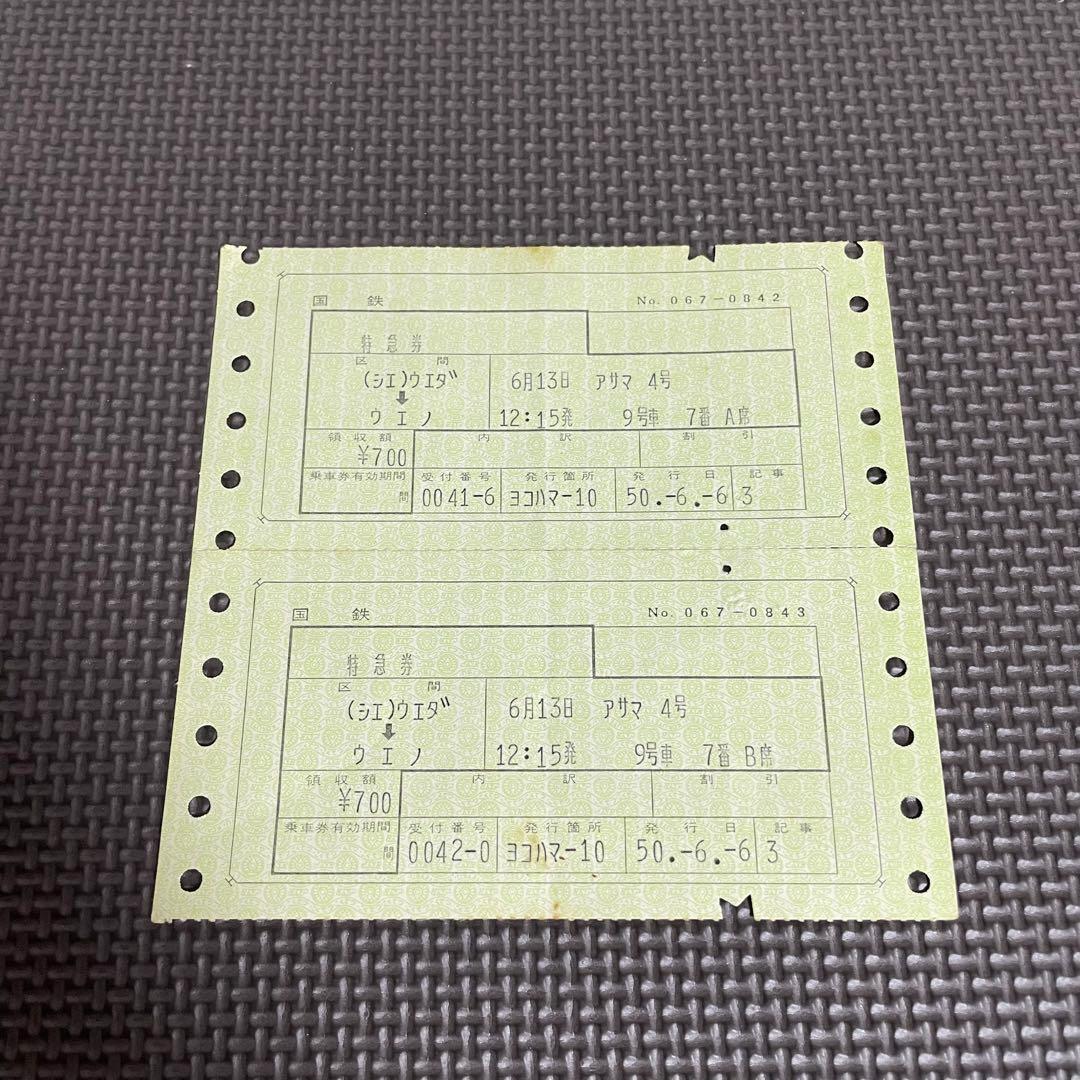 国鉄 No. 067-0842
特急券
区間
(シエ)ウエダ 6月13日 アサマ 4号
➡
ウエノ 12:15発 9号車 7番 A席
領収額 内訳 割引
¥700
乗車券有効期間 受付番号 発行箇所 発行日 記事
間 0041-6 ヨコハマ-10 50.-6.-6 3
国鉄 No. 067-0843
特急券
区間
(シエ)ウエダ 6月13日 アサマ 4号
➡
ウエノ 12:15発 9号車 7番 B席
領収額 内訳 割引
¥700
乗車券有効期間 受付番号 発行箇所 発行日 記事
間 0042-0 ヨコハマ-10 50.-6.-6 3